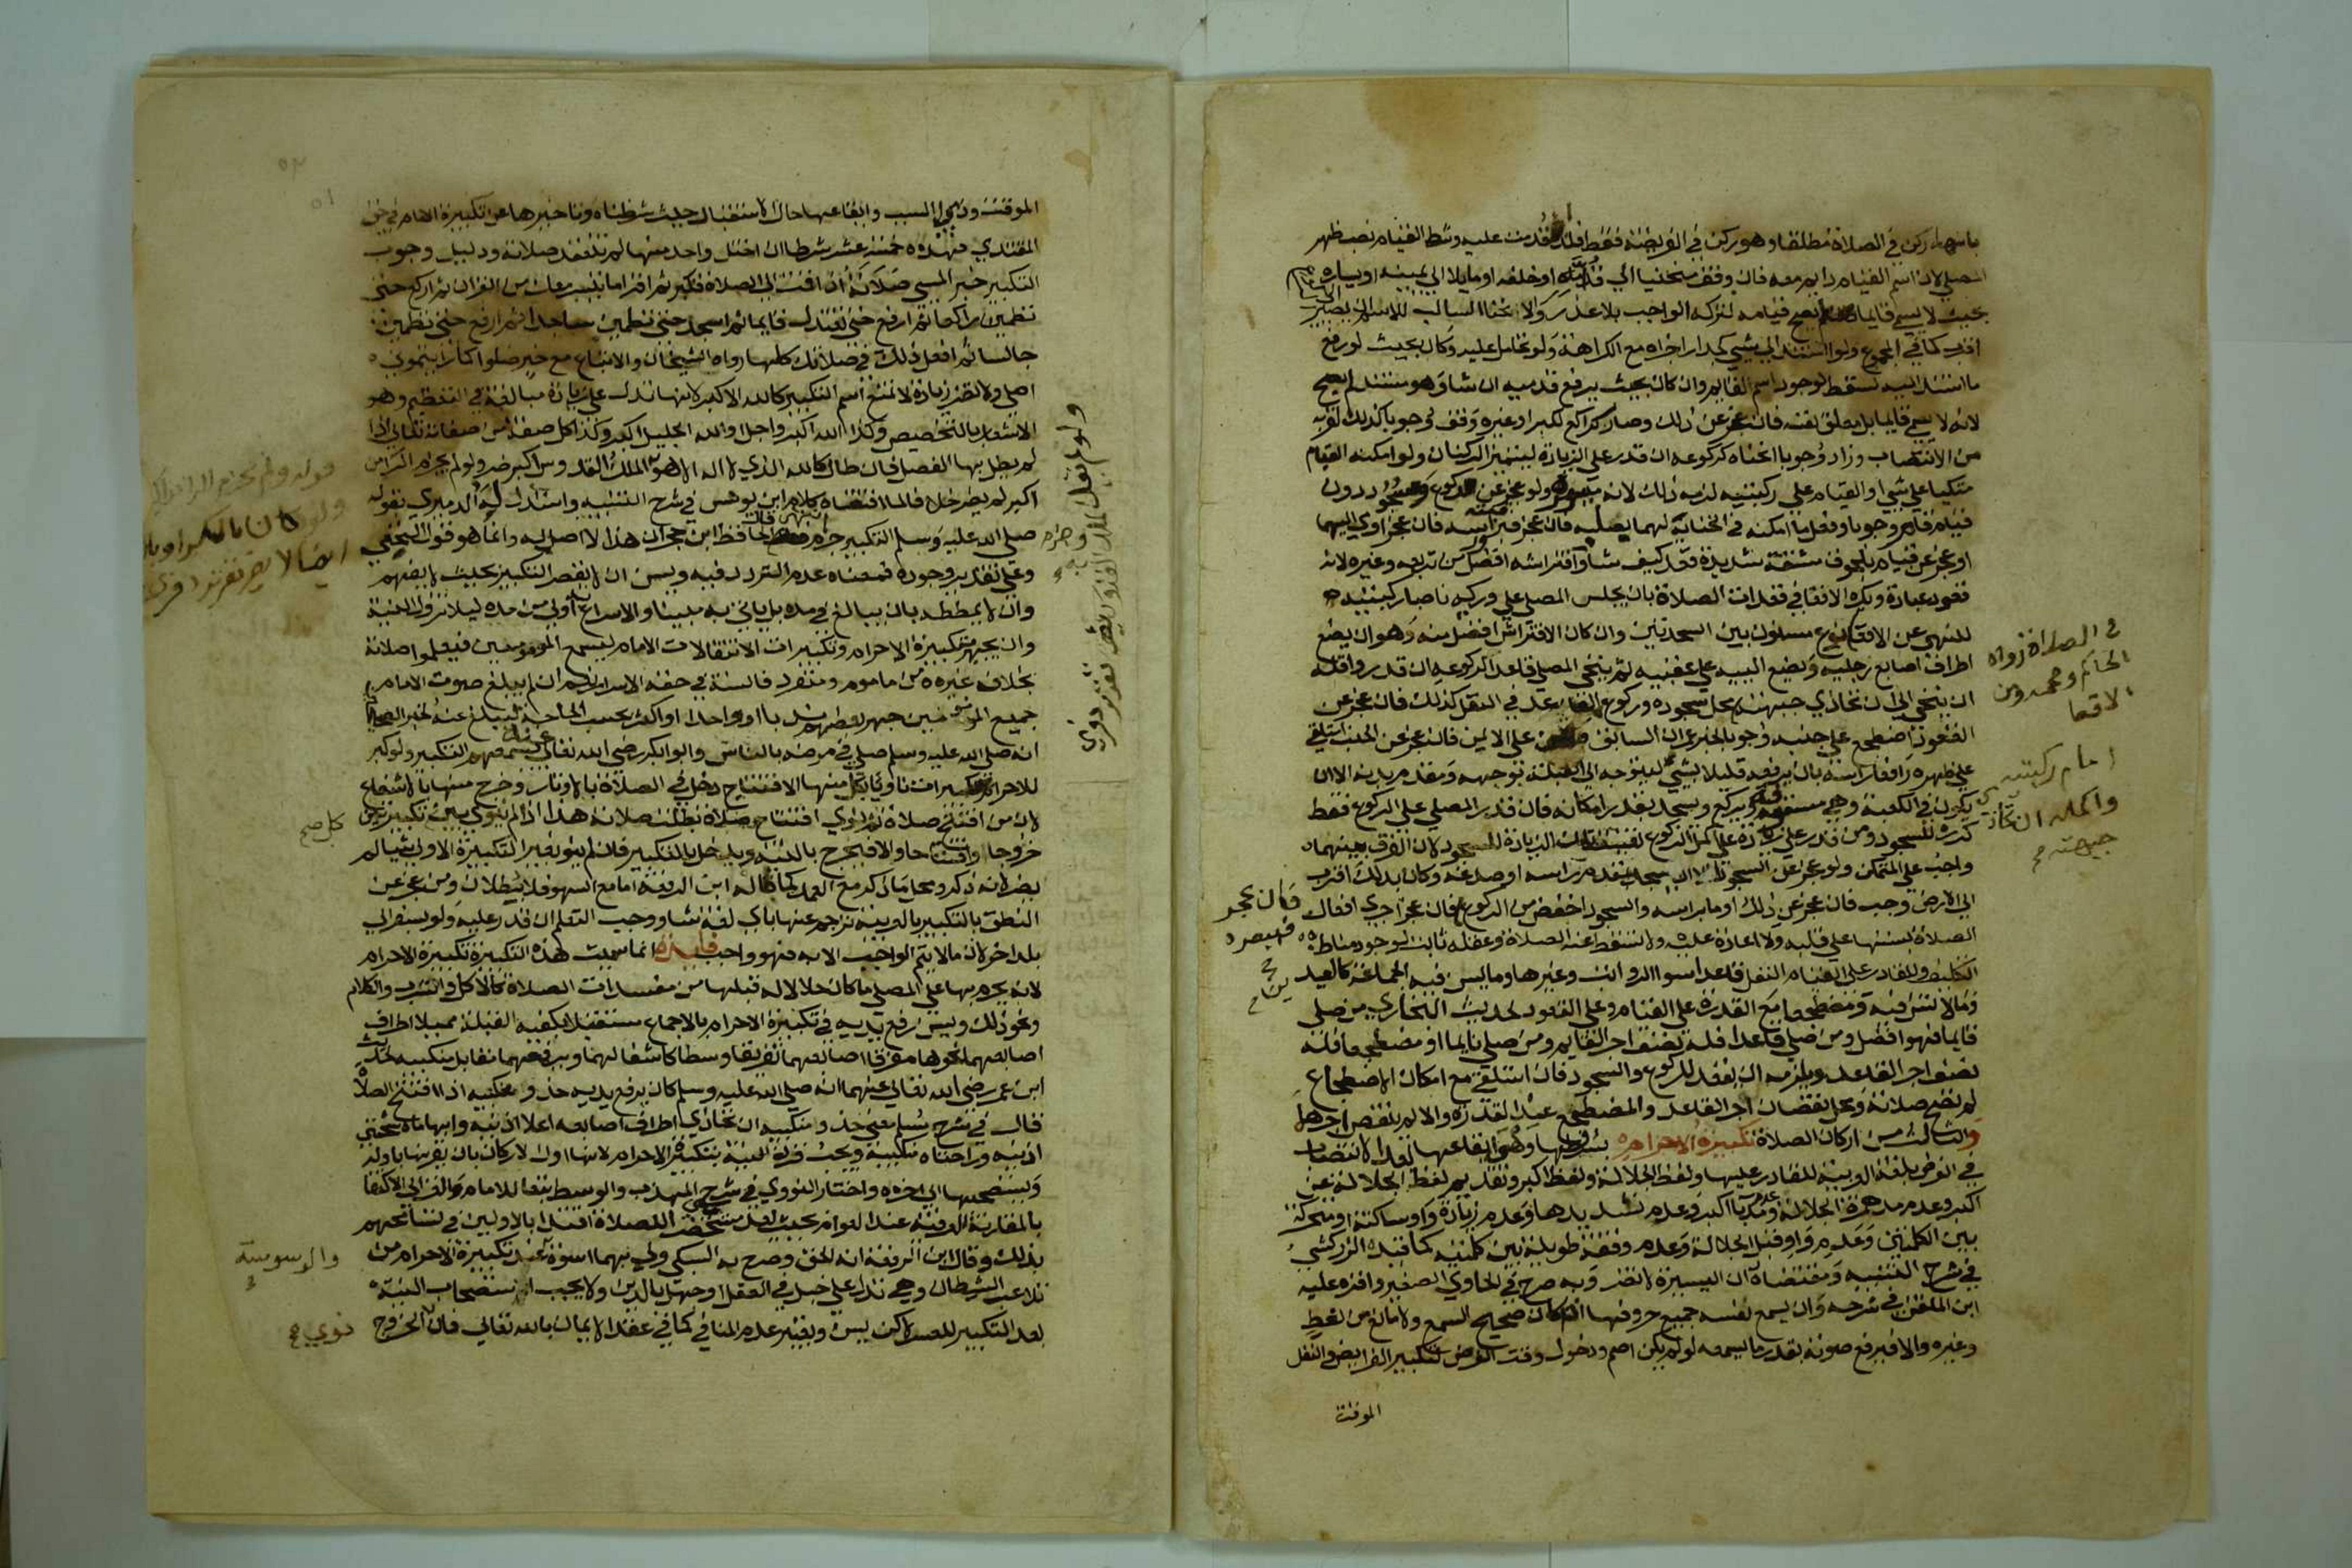 بانها ركن في الصلاة مطلقا وهو ركن في الفريضة فقط فلذا قدمت عليه وشرط القيام نصب ظهر
المصلي لان اسم القيام داير معه فان وقف منحنيا الي قدامه او خلفه او مايلا الي يمينه او يساره
بحيث لا يسمي قايما لم يصح قيامه لتركه الواجب بلا عذر والانحنا السالب للاسم ان يصير الي الركوع
اقرب كما في المجموع ولو استند الي شي كجدار اجزاه مع الكراهة ولو تحامل عليه وكان بحيث لو رفع
ما استند اليه لسقط لوجود اسم القيام وان كان بحيث يرفع قدميه ان شا وهو مستند لم يصح
لانه لا يسمي قايما بل معلق نفسه فان عجز عن ذلك وصار كراكع لكبر او غيره وقف وجوبا كذلك لقربه
من الانتصاب وزاد وجوبا انحناه لركوعه ان قدر علي الزيادة ليتميز الركنان ولو امكنه القيام
متكيا علي شي او القيام علي ركبتيه لزمه ذلك لانه ميسوره ولو عجز عن ركوع وسجود دون
قيام قام وجوبا وفعل ما امكنه في انحنايه لهما بصلبه فان عجز فبراسه فان عجز اومي اليهما
او عجز عن قيام بلحوق مشقة شديدة قعد كيف شا وافتراشه افضل من تربعه وغيره لانه
قعود عبادة ويكره الاقعا في قعدات الصلاة بان يجلس المصلي علي وركيه ناصبا ركبتيه
للنهي عن الاقعا نوع مسنون بين السجدتين وان كان الافتراش افضل منه وهو ان يضع
اطراف اصابع رجليه ويضع اليبه علي عقبيه ثم ينحني المصلي قاعدا لركوعه ان قدر واقله
ان ينحني الي ان تحاذي جبهته محل سجوده وركوع القاعد في النفل كذلك فان عجز عن
القعود اضطجع علي جنبه وجوبا لخبر عمران السابق علي الايمن فان عجز عن الجنب استلقي
علي ظهره رافعا راسه بان يرفعه قليلا بشي ليتوجه الي القبلة بوجهه ومقدم بدنه الا ان
يكون في الكعبة وهي مسقفة ويركع ويسجد بقدر امكانه فان قدر المصلي علي الركوع فقط
كرره للسجود ومن قدر علي زيادة علي اكمل الركوع تعينت تلك الزيادة للسجود لان الفرق بينهما
واجب علي المتمكن ولو عجز عن السجود الا ان يسجد بمقدم راسه او صدغه وكان بذلك اقرب
الي الارض وجب فان عجز عن ذلك اوما براسه والسجود اخفض من الركوع فان عجز اجري افعال
الصلاة بسننها علي قلبه ولا اعادة عليه ولا تسقط عنه الصلاة وعقله ثابت لوجود مناط
التكليف وللقادر علي القيام النفل قاعدا سوا الرواتب وغيرها وما يسن فيه الجماعة كالعيد
وما لا تسن فيه ومضطجعا مع القدرة علي القيام وعلي القعود لحديث البخاري من صلي
قايما فهو افضل ومن صلي قاعدا فله نصف اجر القايم ومن صلي نايما او مضطجعا فله
نصف اجر القاعد ويلزمه ان يقعد للركوع والسجود فان استلقي مع امكان الاضطجاع
لم تصح صلاته ومحل نقصان اجر القاعد والمضطجع عند القدرة والا لم ينقص اجرهما
والثالث من اركان الصلاة تكبيرة الاحرام بشروطها وهي ايقاعها بعد الانتصاب
في الفرض بلغة العربية للقادر عليها ولفظ الجلالة ولفظ اكبر وتقديم لفظ الجلالة عن
اكبر وعدم مد همزة الجلالة وعدم مد با اكبر وعدم تشديدها وعدم زيادة واو ساكنة او متحركة
بين الكلمتين وعدم واو قبل الجلالة وعدم وقفة طويلة بين كلمتيه كما قيده الزركشي
في شرح التنبيه ومقتضاه ان اليسيرة لا تضر وبه صرح في الحاوي الصغير واقره عليه
ابن الملقن في شرحه وان يسمع نفسه جميع حروفها ان كان صحيح السمع ولا مانع من لغط
وغيره والا فيرفع صوته بقدر ما يسمعه لو لم يكن اصم ودخول وقت الفرض لتكبير الفرايض والنفل
الموقت
في الصلاة رواه
الحاكم وصححه ومن
الاقعا
امام ركبتيه
واكمله ان تحاذي
جبهته
فان عجز
فببصره
الموقت وذي السبب وايقاعها حال الاستقبال حيث شرطناه وتاخيرها عن تكبيرة الامام في حق
المقتدي فهذه خمسة عشر شرطا ان اختل واحد منها لم تنعقد صلاته ودليل وجوب
التكبير خبر المسي صلاته اذا قمت الي الصلاة فكبر ثم اقرا ما تيسر معك من القران ثم اركع حتي
تطمين راكعا ثم ارفع حتي تعتدل قايما ثم اسجد حتي تطمين ساجدا ثم ارفع حتي تطمين
جالسا ثم افعل ذلك في صلاتك كلها رواه الشيخان والاتباع مع خبر صلوا كما رايتموني
اصلي ولا تضر زيادة لا تمنع اسم التكبير كالله الاكبر لانها تدل علي زيادة مبالغة في التعظيم وهو
الاشعار بالتخصيص وكذا الله اكبر واجل او الله الجليل اكبر وكذا كل صفة من صفاته تعالي اذا
لم يطل بها الفصل فان طال كالله الذي لا اله الا هو الملك القدوس اكبر ضر ولو لم يجزم الرا من
اكبر لم يضر خلافا لما اقتضاه كلام ابن يونس في شرح التنبيه واستدل له الدميري بقوله
صلي الله عليه وسلم التكبير جزم قال الحافظ ابن حجر ان هذا لا اصل له وانما هو قول النخعي
وعلي تقدير وجوده فمعناه عدم التردد فيه ويسن ان لا يقصر التكبير بحيث لا يفهم
وان لا يمططه بان يبالغ في مده بل ياتي به مبينا والاسراع به اولي من مده ليلا تزول النية
وان يجهر بتكبيرة الاحرام وتكبيرات الانتقالات الامام ليسمع المامومين فيعلموا صلاته
بخلاف غيره من ماموم ومنفرد فالسنة في حقه الاسرار نعم ان لم يبلغ صوت الامام
جميع المامومين جهر بعضهم ندبا واحدا او اكثر بحسب الحاجة ليبلغ عنه لخبر الصحيحين
انه صلي الله عليه وسلم صلي في مرضه بالناس وابو ابكر رضي الله تعالي عنه يسمعهم التكبير ولو كبر
للاحرام تكبيرات ناويا بكل منها الافتتاح دخل في الصلاة بالاوتار وخرج منها بالاشفاع
لان من افتتح صلاة ثم نوي افتتاح صلاة بطلت صلاته هذا اذا لم ينوي بين كل تكبيرتين
خروجا وافتتاحا والا فيخرج بالنية ويدخل بالتكبير فان لم ينو بغير التكبيرة الاولي شيا لم
يضر لانه ذكر ومحل ما ذكر مع العمد كما قاله ابن الرفعة اما مع السهو فلا بطلان ومن عجز عن
النطق بالتكبير بالعربية ترجم عنها باي لغة شا ووجب التعلم ان قدر عليه ولو بسفر الي
بلد اخر لان ما لا يتم الواجب الا به فهو واجب فايدة انما سميت هذه التكبيرة تكبيرة الاحرام
لانه يحرم بها علي المصلي ما كان حلالا له قبلها من مفسدات الصلاة كالاكل والشرب والكلام
ونحو ذلك ويسن رفع يديه في تكبيرة الاحرام بالاجماع مستقبلا بكفيه القبلة مميلا اطراف
اصابعهما نحوها مفرقا اصابعهما تفريقا وسطا كاشفا لهما ويرفعهما مقابل منكبيه لحديث
ابن عمر رضي الله تعالي عنهما انه صلي الله عليه وسلم كان يرفع يديه حذو منكبيه اذا افتتح الصلاة
قال في شرح مسلم معني حذو منكبيه ان تحاذي اطراف اصابعه اعلا اذنيه وابهاماه شحمتي
اذنيه وراحتاه منكبيه ويجب قرن النية بتكبيرة الاحرام لانها اول الاركان بان يقرنها باوله
ويستصحبها الي اخره واختار النووي في شرحي المهذب والوسيط تبعا للامام والغزالي الاكتفا
بالمقارنة العرفية عند العوام بحيث يعد مستحضرا للصلاة اقتدا بالاولين في تسامحهم
بذلك وقال ابن الرفعة انه الحق وصوبه السبكي ولي بهما اسوة عند تكبيرة الاحرام من
تلاعب الشيطان وهي تدل علي خبل في العقل او جهل بالدين ولا يجب استصحاب النية
بعد التكبير للعسر لكن يسن ويعتبر عدم المنافي كما في عقد الايمان بالله تعالي فان نوي الخروج
كل صح
والوسوسة
نوي صح